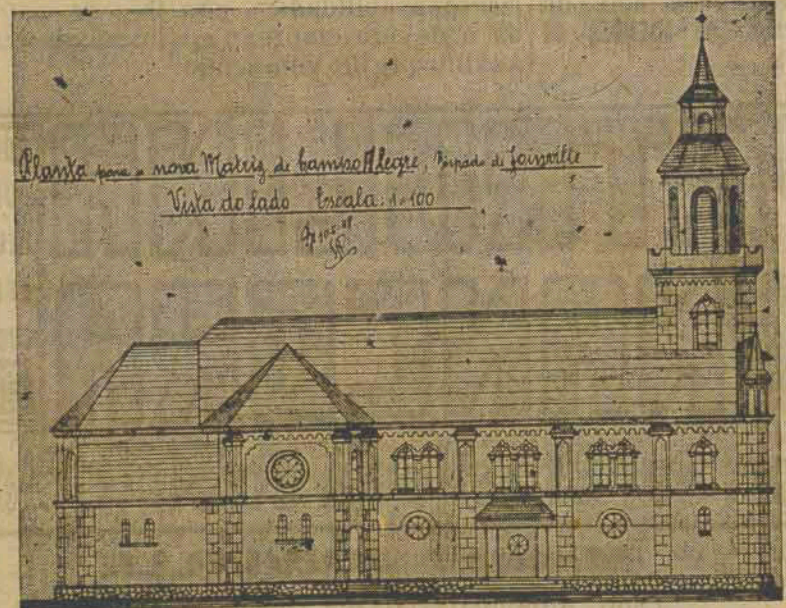 Planta para a nova Matriz de Campo Alegre, Bispado de Joinville
Vista do lado Escala: 1:100